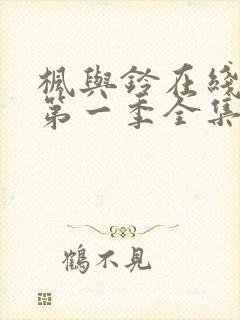 楓與鈴在綫
第一季全集
鶴不見